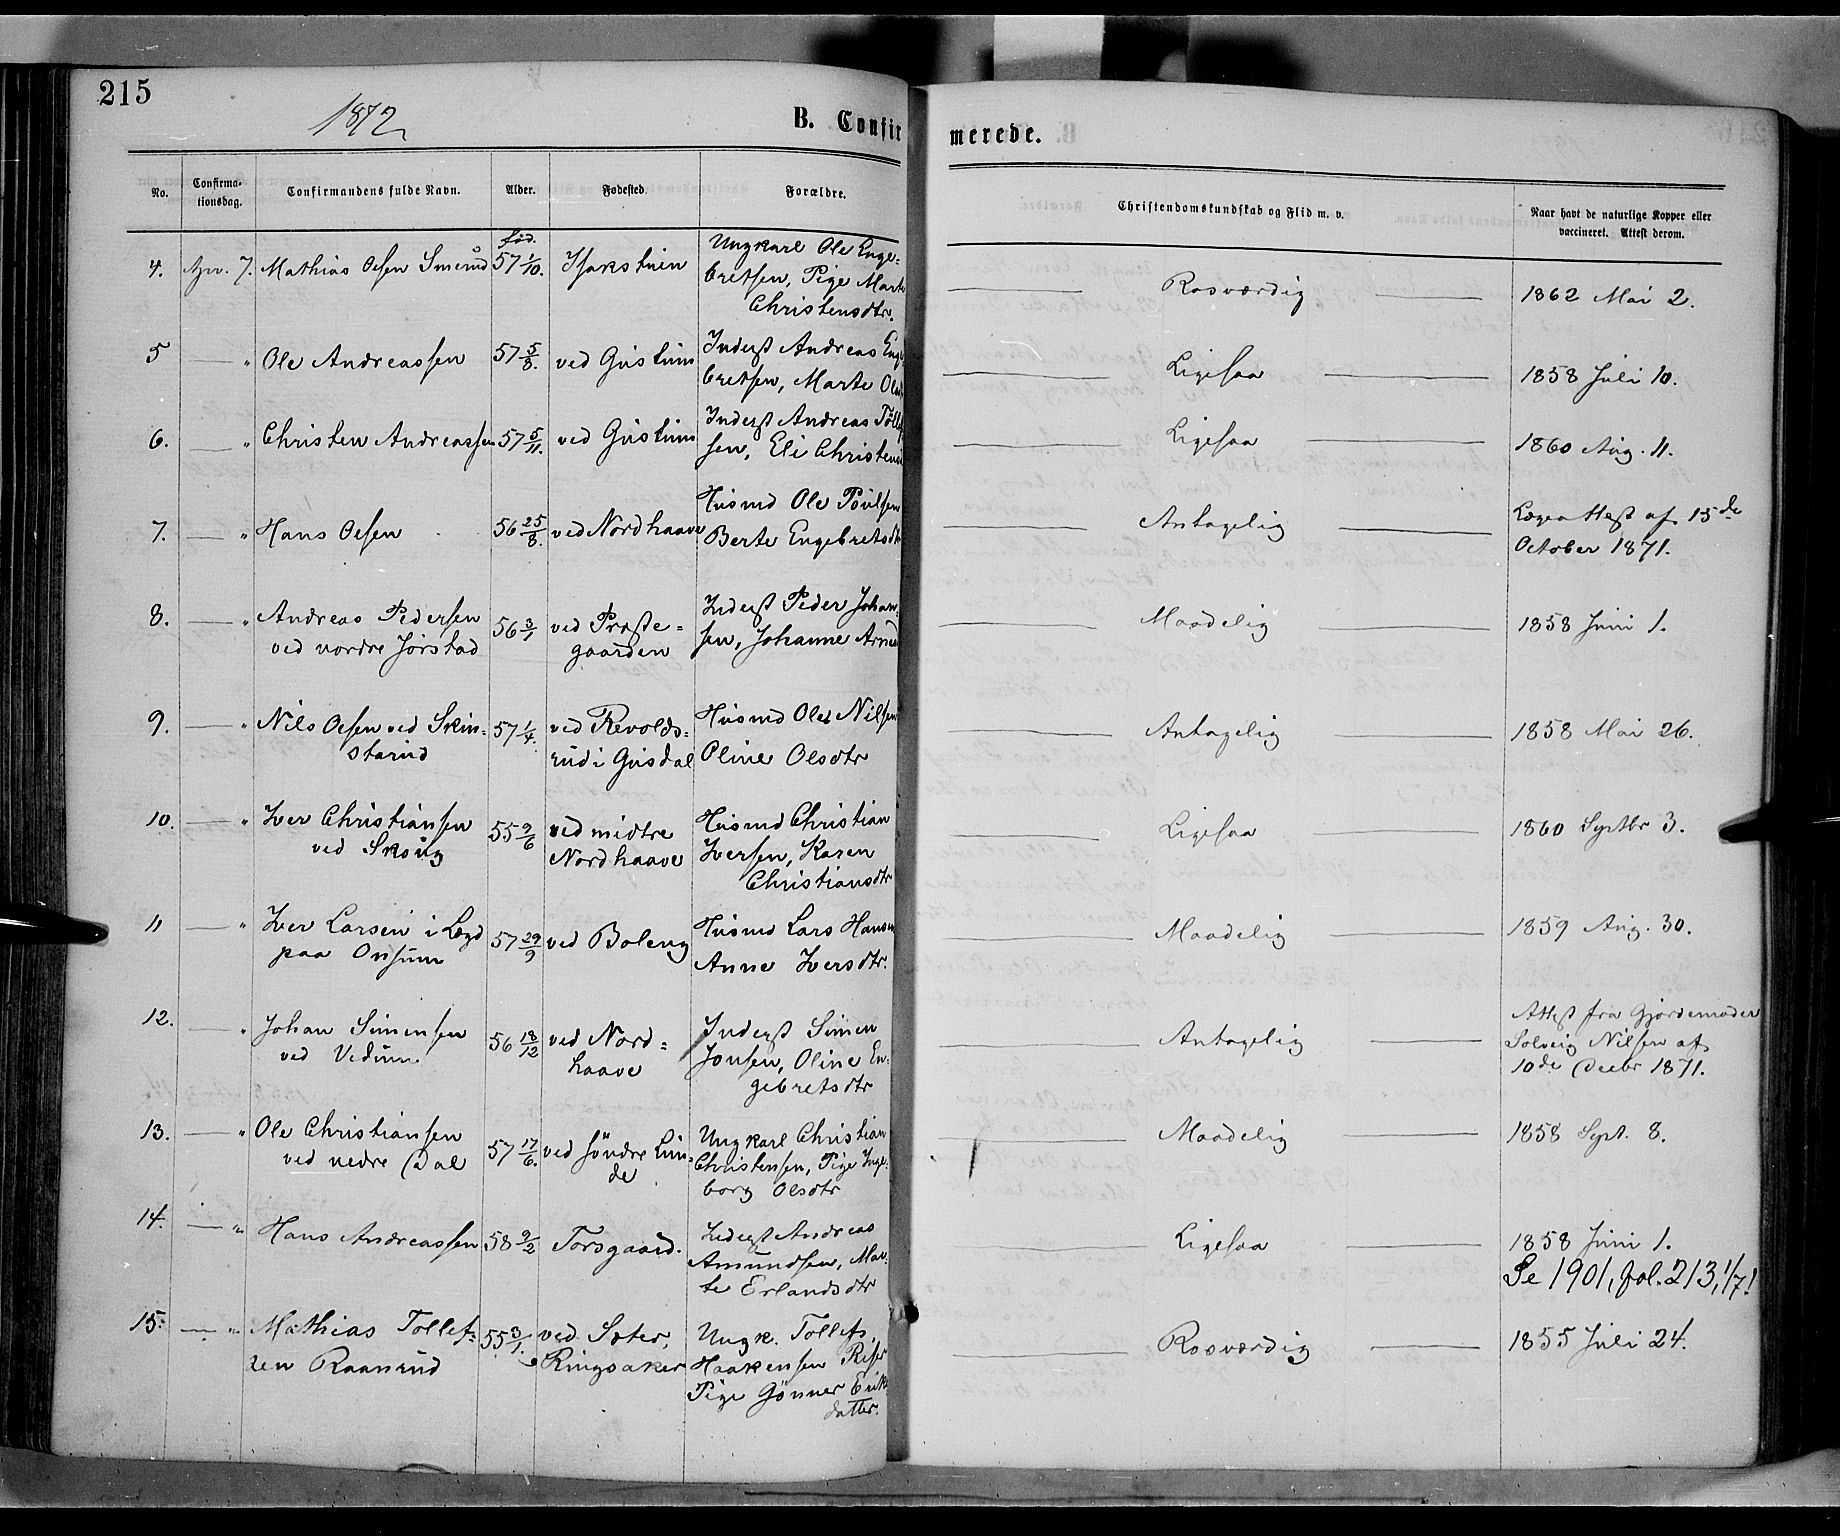 215
1872
B. Confir
merede.
No.
Confirma-
tionsdag.
Confirmandens fulde Navn.
Alder.
Fødested.
Forældre.
Christendomskundskab og Flid m. v.
Naar havt de naturlige Kopper eller
vaccineret. Attest derom.
fød.
4. Apr. 7. Mathias Olsen Smerud 57 1/10. Isakstuen
Ungkarl Ole Enge-
bretsen, Pige Marte
Christensdtr.
Rosværdig
1862 Mai 2.
5 — " Ole Andreassen 57 5/8. ved Gustum
Inderst Andreas Enge
bretsen, Marte Olsd
Ligesaa
1858 Juli 10.
6. — " Christen Andreassen 57 5/11. ved Gustum
Inderst Andreas Tollef
sen, Eli Christens
Ligesaa
1860 Aug. 11.
7. — " Hans Olsen 56 25/8. ved Nordhaave
Husmd Ole Poulsen
Berte Engebretsdt
Antagelig
Lægeattest af 15de
October 1871.
8. — " Andreas Pedersen
ved nordre Jørstad
56 3/1
ved Præste-
gaarden
Inderst Peder Johan-
sen, Johanne Arne
Maadelig
1858 Juni 1.
9. — " Nils Olsen ved Skin-
starud
57 1/4.
ved Revolds-
rud i Gusdal
Husmd Ole Nilsen
Oline Olsdtr
Antagelig
1858 Mai 26.
10. — " Iver Christiansen
ved Skoug
55 9/6
ved midtre
Nordhaave
Husmd Christian
Iversen, Karen
Christiansdtr
Ligesaa
1860 Septbr 3.
11 — " Iver Larsen i Lægd
paa Onsum
57 29/9
ved Boleng
Husmd Lars Hansen
Anne Iversdtr.
Maadelig
1859 Aug. 30.
12. — " Johan Simensen
ved Vedum
56 18/12
ved Nord-
haave
Inderst Simen
Jonsen, Oline En-
gebretsdtr
Antagelig
Attest fra Gjordemoder
Solveig Nilsen af
10de Decbr 1871.
13. — " Ole Christiansen
ved nedre Dal
57 17/6.
ved søndre Lun-
de
Ungkarl Christian
Christensen, Pige Inge-
borg Olsdtr
Maadelig
1858 Sept. 8.
14. — " Hans Andreassen 58 9/2 Torsgaard.
Inderst Andreas
Amundsen, Mar-
te Erlandsdtr
Ligesaa
1858 Juni 1.
Se 1901, fol. 213, 1/7!
15. — " Mathias Tollef-
sen Raanrud
55 3/1.
ved Sæter,
Ringsaker
Ungk. Tollef
Haakensen
Pige Gønner Eriks
datter.
Rosværdig
1855 Juli 24.